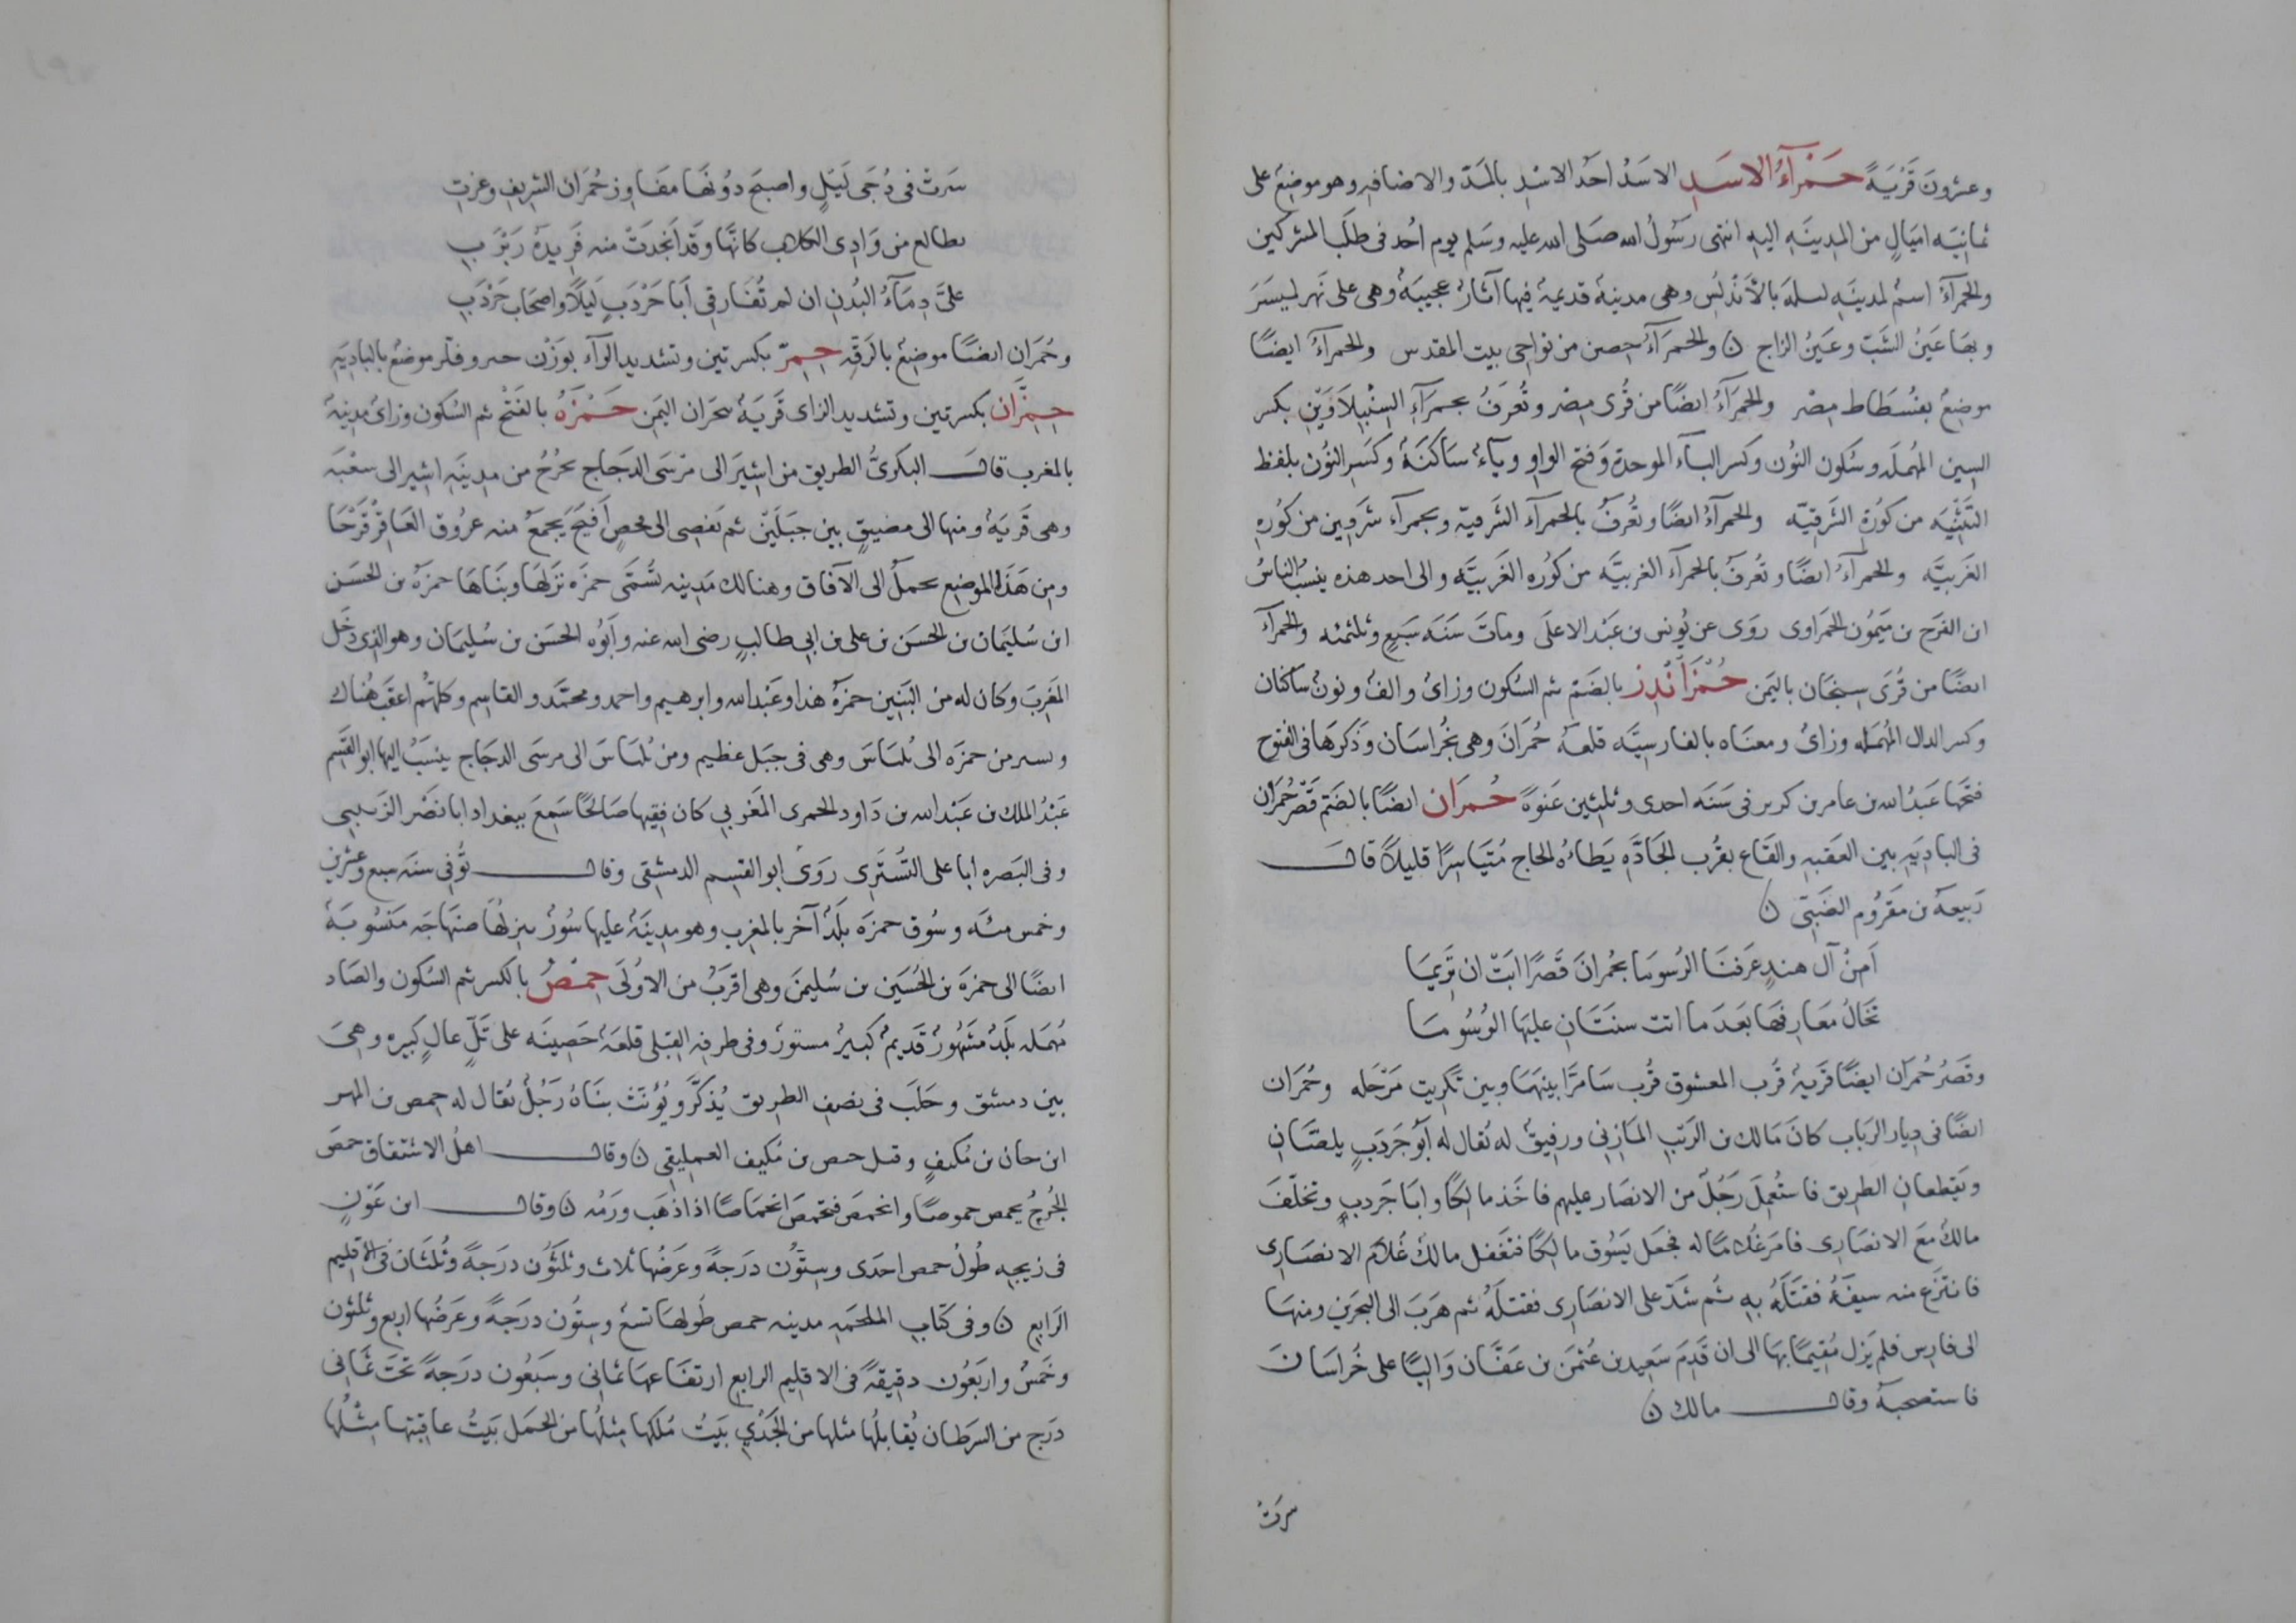 وعشرون قَرْيَةً حَمْرَآءُ الاسَدِ الاسَدُ احَد الاسْدِ بالمَدّ والاضافه وهو موضِعٌ على
ثمانيَه اميَالٍ من المدِينَهِ اليهِ انتهى رَسُولُ الله صَلى الله عليه وسَلم يوم اُحُد فى طلَب المشركين
والحمرَآءُ اسمٌ لمدينَهِ لبلهَ بالأَندَلُس وهى مدينهٌ قديمهٌ فيها آثارٌ عجيبَهٌ وهى على نَهر ليسَرَ
وبهَا عَينُ الشَبّ وعَينُ الزاج ن والحمَرَآءُ حِصن من نوَاحِى بيت المقدس والحمرَآءُ ايضًا
موضِعٌ بفسُطَاط مِصْر والحمَرآءُ ايضًا من قُرى مِصْر وتُعرَفُ بحمرَآءِ السِنْبِلاَوَيْنِ بكسر
السِين المهُملَه وسُكون النُون وكسر البآء الموحدة وَفتح الواو ويآءٌ سَاكنَةٌ وكسَر النُون بلفظ
التَثنِيَه من كورَةِ الشَرقيّه والحمرآءُ ايضًا وتُعرفُ بالحمرآء الشَرقيه وبحمرآء شَرمِين من كورَهِ
الغَربيَّه والحمرآءُ ايضًا وتُعرفُ بالحمرآء الغربيَّه من كورُه الغَربيَّه والى احد هذه ينسبُ النَاسُ
ابن الفرَج بن ميَمُون الحمَراوى روَى عن يُونس بن عَبْد الاعلَى وماتَ سَنَه سَبعٍ وثلثمئه والحمرآءُ
ايضًا من قُرَى سِنحَان باليَمن حُمْزَانْدِز بالضَم ثم السُكون وزاىٌ والفٌ ونونٌ ساكنان
وكسر الدال المُهمَله وزاىٌ ومعنَاه بالفارسِيَّه قلعهُ حُمرَانَ وهى بخُراسَان وذَكرهَا فى الفتوح
فتحَها عَبدُ الله بن عامر بن كريز فى سَنَه احدى وثلثين عَنوةً حُمرَان ايضًا بالضَم قصْرُ حُمرَان
فى البادِيَهِ بين العَقبهِ والقَاع بقُرب الجَادَّهِ يَطاءُه الحاج مُتيَاسِرًا قليلاً قالـَ
رَبيعهُ بن مَقرُوم الضَبّى ن
اَمِنْ آل هندٍ عَرفتَ الرُسومَا بحُمرانَ قَصْرًا ابَتْ ان تَرِيمَا
تخَالُ معَارِفهَا بَعدَ ما اتت سنَتَانِ عليَها الوُشُومَـا
وقَصرُ حُمرَان ايضًا قَريةٌ قُرب المعشوق قُرب سَامرَّا بينهَمَا وبين تكرِيت مَرْحَله وحُمرَان
ايضًا فى دِيار الرَباب كانَ مَالك بن الرَيب المَازِنِى ورفِيقٌ له يُقال له اَبُو جَردَبٍ يلصّانِ
ويَقطعانِ الطريق فاستُعمِلَ رَجُلٌ من الانصَار عليهم فاخَذ مالِكًا وابَا جَردبٍ وتخلّفَ
مالكٌ مَعَ الانصَارِى فامَر غُلامًا له فجعَل يَسُوق مالِكًا فتغَفل مالكٌ غُلاَم الانصَارِى
فانتزَع منه سيفَهُ فقتَلَهُ بِهِ ثُم شَدَّ على الانصَارِى فقتلَهُ ثم هَرَبَ الى البحرَين ومنهَا
الى فارِس فلم يَزل مُقيمًا بها الى ان قَدِمَ سَعِيد بن عُثمَن بن عَفَّان وَاليًا على خُراسَانَ
فاستصحبهُ وقالـ مالك ن
سَرَتْ
سَرتْ فى دُجَى لَيلٍ واصبحَ دونُهَا مفَاوِز حُمرَان الشرِيفِ وعزتِ
تطالع من وَادِى الكلاب كانَّهَا وقَد اَنجدَتْ منه فَرِيدَهُ رَبرَبِ
علىَّ دِمَآءُ البُدنِ ان لم تُفَارقِى اَبا حَرْدَبٍ لَيلاً واصحَابَ حَرْدَبِ
وحُمرَان ايضًا موضِعٌ بالرَقّه حِمِرّ بكسرتين وتشديد الرآء بوَزْن حبر وفلز موضعٌ بالبادِيَهِ
حِمِزَّان بكسرتين وتشديد الزاى قَريَةٌ بنجرَان اليمَن حَمْزَهُ بالفَتْح ثم السُكون وزاىٌ مدِينةٌ
بالمغرب قالـَ البكرىُّ الطريق من اشِيرَ الى مَرْسَى الدجَاج تخرُجُ من مدِينَهِ اشِير الى شعْبَه
وهى قَريَهٌ ومنها الى مضِيقٍ بين جبَلَين ثم تَفضِى الى فحصٍ أفيَحَ يُجمَعُ منه عرُوق العَاقِرُ قَرْحَا
ومِن هَذَا الموضِع تحملُ الى الآفاق وهنالك مَدِينه تُسَمّى حمزَه نزَلهَا وبنَاهَا حمزَهُ بن الحسَن
ابن سُليَمان بن الحسَن بن على بن ابى طالبٍ رضى الله عنه وأبوُه الحسَن بن سُليمَان وهو الذى دخَل
المَغرِبَ وكان له من البَنِين حمزَهُ هذا وعَبْد الله وابرهيم واحمد ومحمَّد والقاسِم وكلهُم اعقبَ هُناك
وتسير من حمزَه الى بُلبَاسَ وهى فى جبَل عظيم ومن بُلبَاسَ الى مرسَى الدجَاج ينسَبُ اليها ابو القَسِم
عَبْدُ الملك بن عَبْد الله بن دَاود الحمزى المَغربِي كان فِقيها صَالحًا سَمِعَ ببغداد ابا نصَْر الزَينبى
وفى البَصره ابا على التُسترَى روَى ابو القسِم الدمِشقى وقالـ تُوفى سنَه سبع وعشرين
وخمس مئه وسُوق حمزَه بلَدٌ آخر بالمغرب وهو مدِينَهٌ عليها سُورٌ ينزلُها صنهَاجَه مَنسُوبةٌ
ايضًا الى حمزَه بن الحُسَين بن سُليمَن وهى اقرَبُ من الاولَى حِمْصُ بالكسر ثم السُكون والصَاد
مُهمَله بلَدٌ مَشهُورٌ قَديمٌ كبيرٌ مستورٌ وفى طرفِه القبلى قلعَهٌ حَصِينَه على تَلٍّ عالٍ كبيره وهىَ
بين دمشق وحَلَبَ فى نصِف الطريق يُذكّرُ ويُؤنّث بنَاهُ رَجُلٌ يُقال له حِمص بن المهر
ابن حان بن مُكيفٍ وقيل حمص بن مُكيف العِملِيقِى ن وقالـ اهلُ الاشتقاق حمصَ
الجُرحُ يحمص حموصًا وانحمَصَ ينحَمصَ انحمَاصًا اذا ذهَب وَرَمُه ن وقالـ ابن عَوْنٍ
فى زيجه طُولُ حمص احدَى وسِتُّون دَرجَةً وعَرضُها ثلاث وثلَثُون درَجةً وثُلثَان فى الاقليم
الرَابع ن وفى كتَاب الملحَمِه مدينه حمص طُولهَا تسعٌ وسِتُون درجَةً وعَرضُها اربع وثلثون
وخَمسٌ واربَعُون دقيقهً فى الاقليم الرابع ارتفَاعهَا ثمانى وسَبعُون درَجهً تحتَ ثمَانى
درَج من السَرطان يُقابلُها مثلها من الجَدْىِ بَيتُ مُلكِها مِثلُها من الحمَل بَيتُ عاقبتها مِثلُها